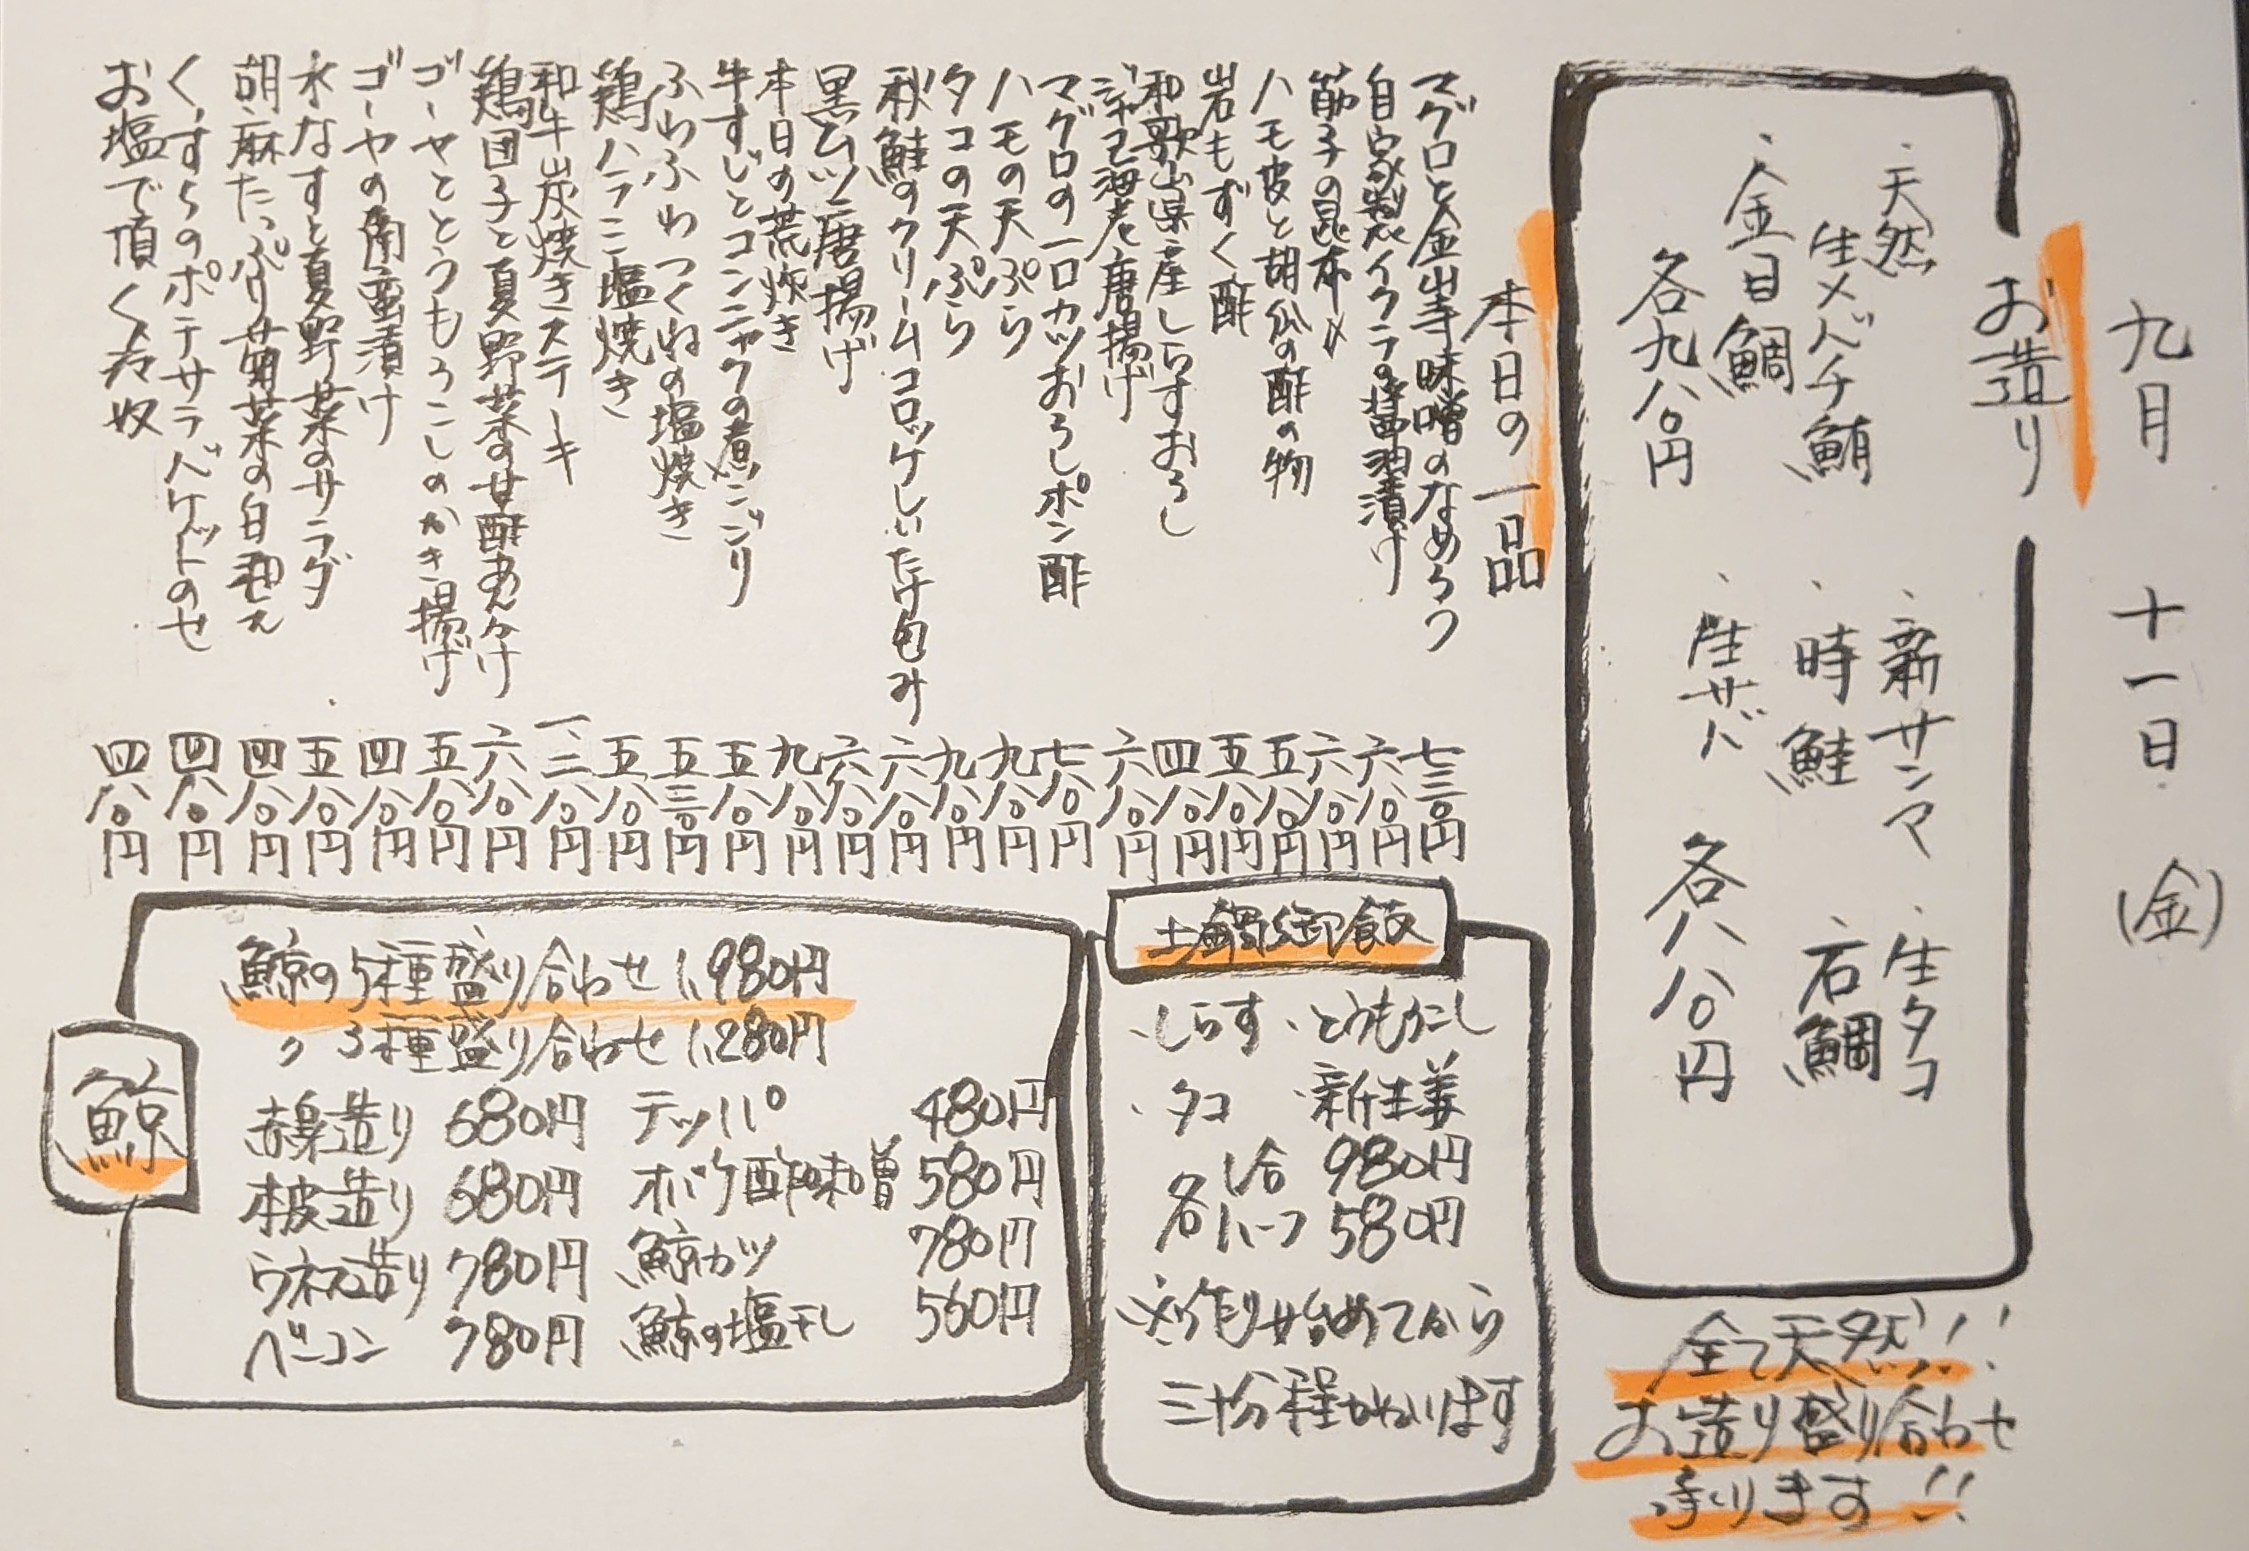 九月 十一日 (金)
お造り
・天然
生メバチ鮪
・金目鯛
各九八〇円
・新サンマ ・生タコ
・時鮭 ・石鯛
・生サバ 各八八〇円
全て天然!!
お造り盛り合わせ
承ります!!
本日の一品
マグロと金山寺味噌のなめろう 七三〇円
自家製イクラの醤油漬け 六八〇円
筋子の昆布〆 六八〇円
ハモ皮と胡瓜の酢の物 五八〇円
岩もずく酢 五八〇円
和歌山県産しらすおろし 四八〇円
ジャコ海老唐揚げ 六八〇円
マグロの一口カツおろしポン酢 七八〇円
ハモの天ぷら 九八〇円
タコの天ぷら 九八〇円
秋鮭のクリームコロッケしいたけ包み 六八〇円
黒ムツ唐揚げ 六八〇円
本日の荒炊き 九八〇円
牛すじとコンニャクの煮こごり 五八〇円
ふわふわつくねの塩焼き 五三〇円
鶏ハラミ塩焼き 五八〇円
和牛炭焼きステーキ 一、三八〇円
鶏団子と夏野菜の甘酢あんかけ 六八〇円
ゴーヤととうもろこしのかき揚げ 五八〇円
ゴーヤの南蛮漬け 四八〇円
水なすと夏野菜のサラダ 五八〇円
胡麻たっぷり菊菜の白和え 四八〇円
くずしのポテサラバケットのせ 四八〇円
お塩で頂く冷奴 四八〇円
土鍋御飯
・しらす ・とうもろこし
・タコ ・新生姜
1合 980円
各ハーフ 580円
※作り始めてから
三十分程かかります
鯨
鯨の5種盛り合わせ 1,980円
〃 3種盛り合わせ 1,280円
赤身造り 680円 テッパ 480円
本皮造り 680円 オバケ酢味噌 580円
ウネス造り 780円 鯨カツ 780円
ベーコン 780円 鯨の塩干し 560円